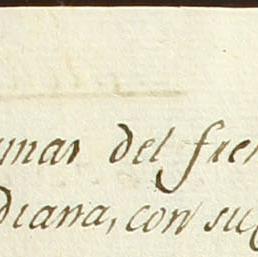 unar del fie
diana, con su